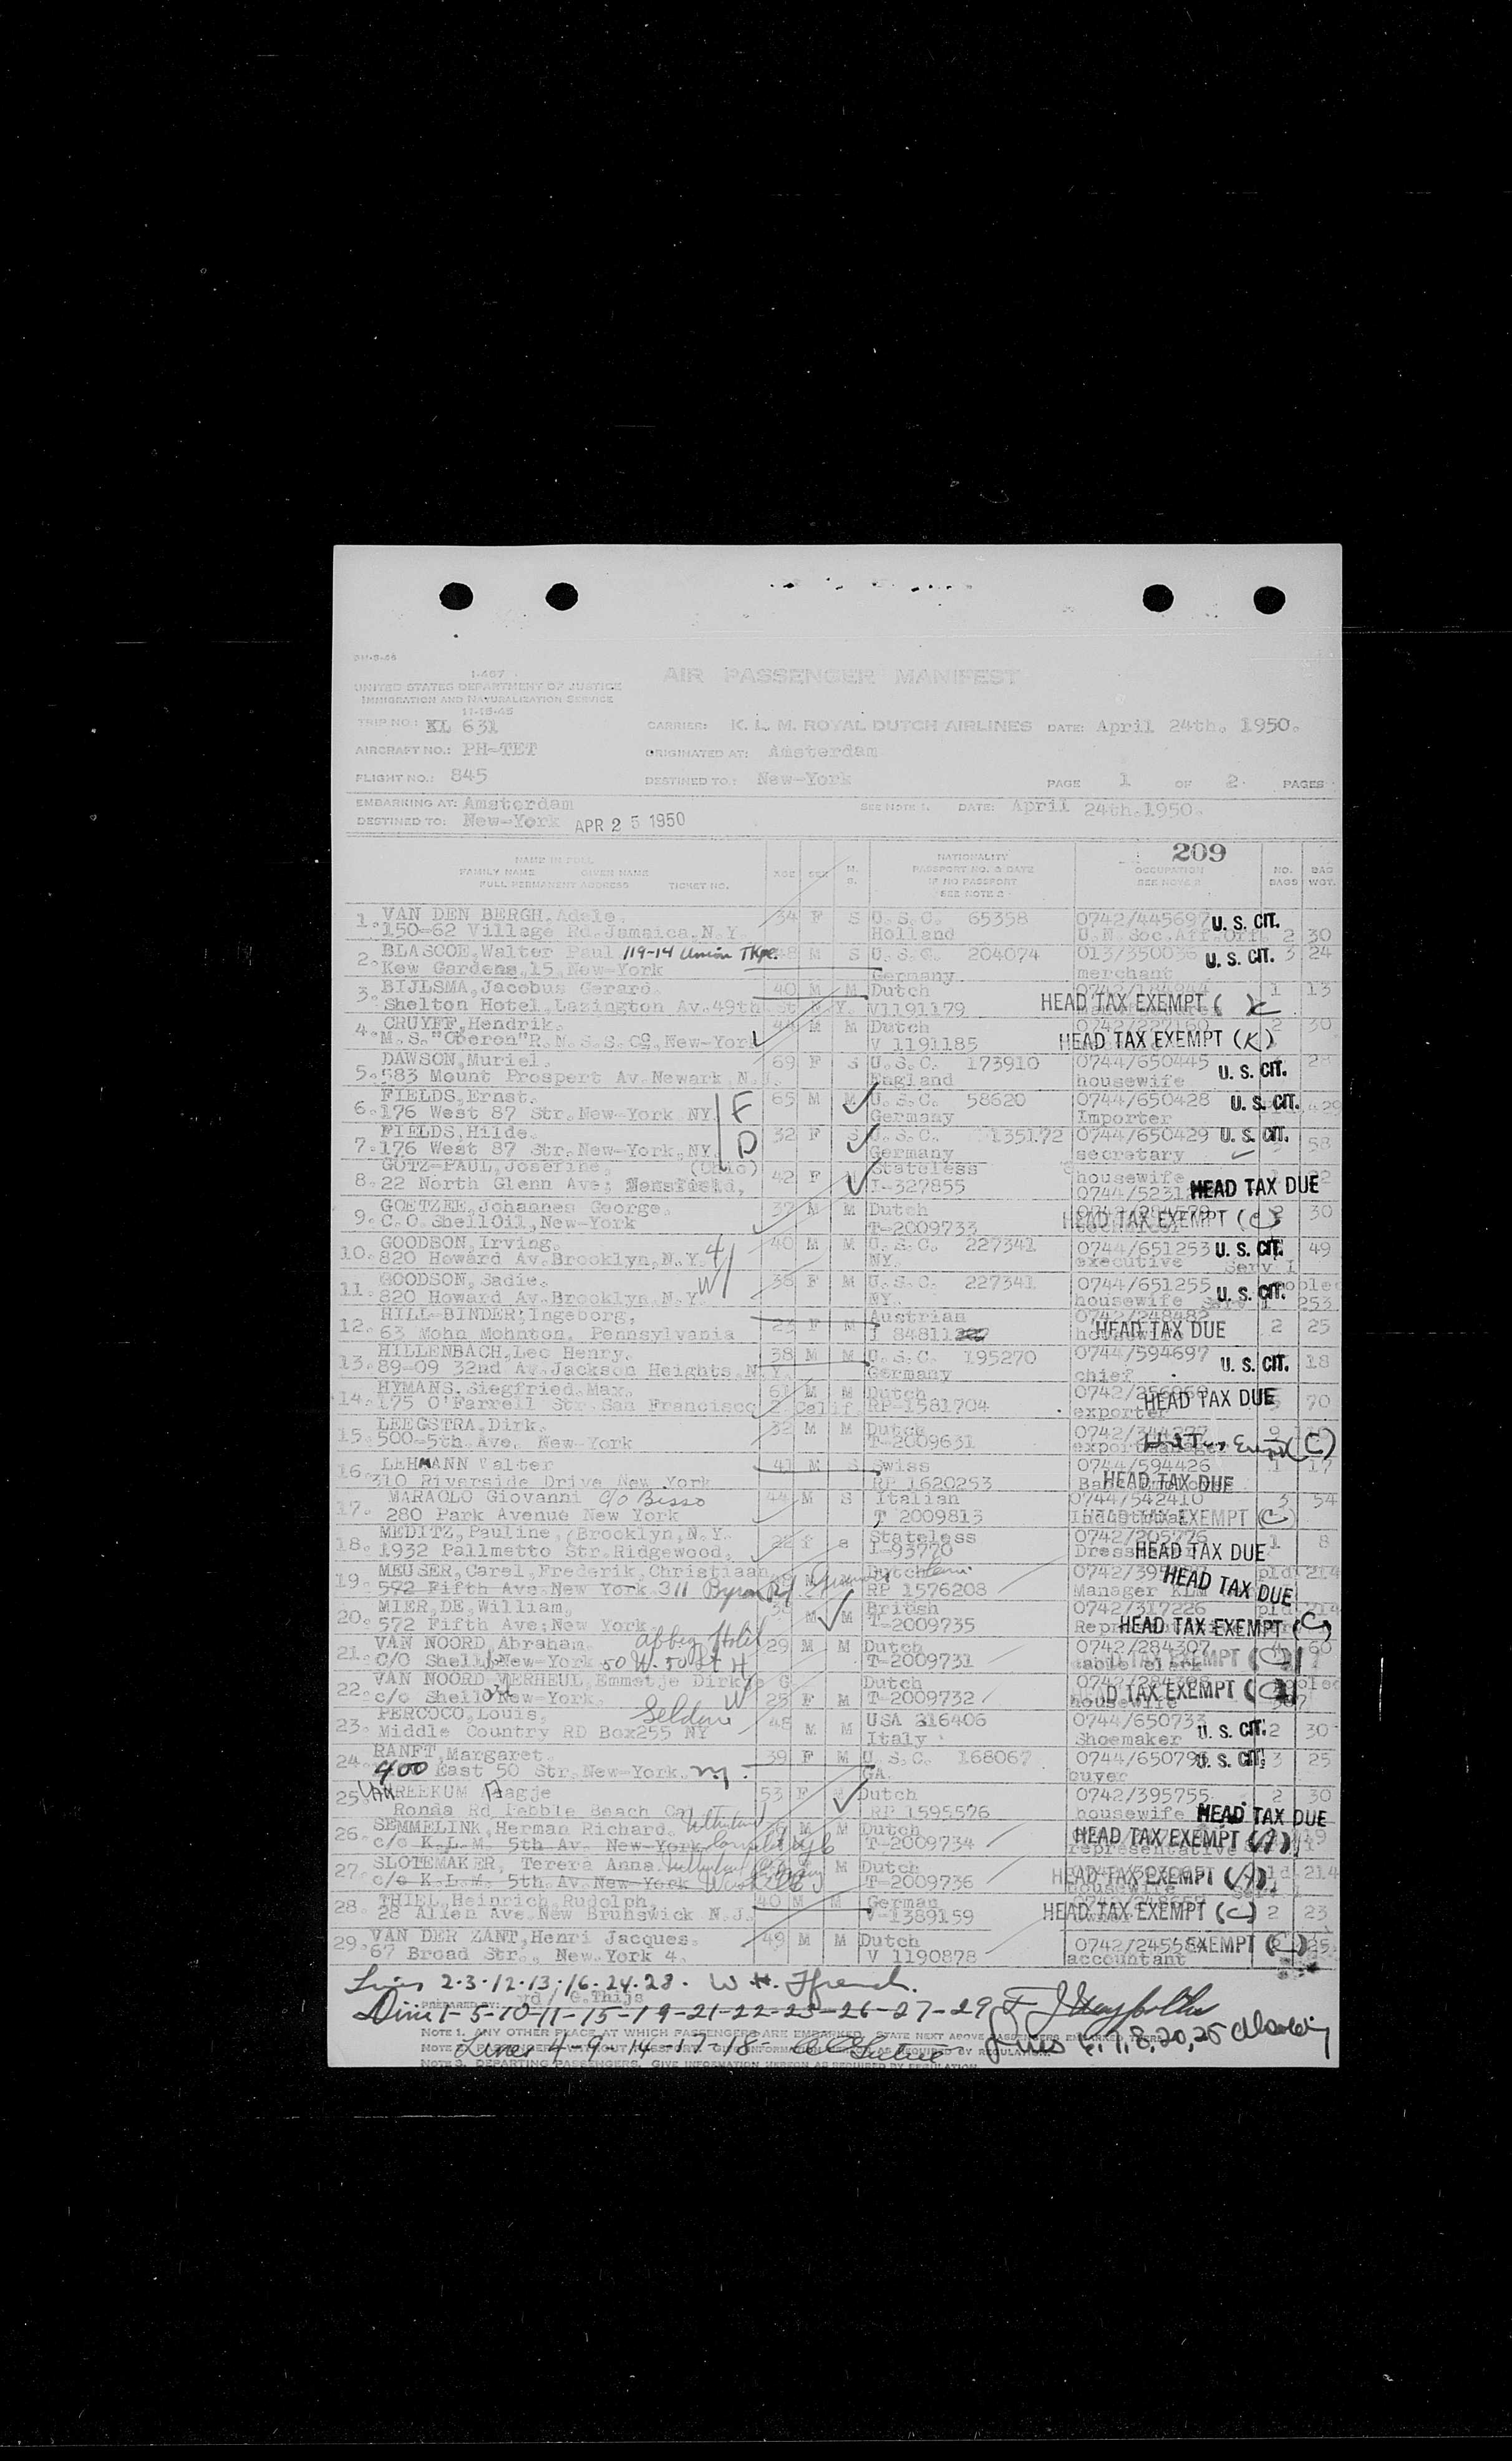 I-467
UNITED STATES DEPARTMENT OF JUSTICE
IMMIGRATION AND NATURALIZATION SERVICE
11-15-45
AIR PASSENGER MANIFEST
TRIP NO.: KL 631 CARRIER: K. L. M. ROYAL DUTCH AIRLINES DATE: April 24th. 1950.
AIRCRAFT NO.: PH-TET ORIGINATED AT: Amsterdam
FLIGHT NO.: 845 DESTINED TO: New-York PAGE 1 OF 2. PAGES
EMBARKING AT: Amsterdam SEE NOTE 1. DATE: April 24th.1950.
DESTINED TO: New-York APR 2 5 1950
209
NAME IN FULL
FAMILY NAME GIVEN NAME
FULL PERMANENT ADDRESS TICKET NO.
AGE SEX M. S.
NATIONALITY
PASSPORT NO. & DATE
IF NO PASSPORT
SEE NOTE 2
OCCUPATION
SEE NOTE
NO. BAGS
BAG WGT.
1. VAN DEN BERGH, Adele. 34 F S U.S.C. 65358 0742/445697 U. S. CIT.
150-62 Village Rd.Jamaica.N.Y. Holland U.N.Soc.Aff.Off. 2 30
2. BLASCOE, Walter Paul 119-14 Union Tkpe. M S U.S.C. 204074 U. S. CIT. 3 24
Kew Gardens,15,New-York Germany merchant
3. BIJLSMA, Jacobus Gerard. 40 M M Dutch 1 13
Shelton Hotel,Lazington Av.49th St N.Y. V1191179 HEAD TAX EXEMPT (
4. CRUYFF,Hendrik. M M Dutch 2 30
M.S."Oberon"R.N.S.S.Co,New-York V 1191185 HEAD TAX EXEMPT (K)
5. DAWSON,Muriel. 69 F S U.S.C. 173910 0744/650445 28
583 Mount Prospert Av.Newark N.J. England housewife U. S. CIT.
6. FIELDS,Ernst. F 65 M M U.S.C. 58620 0744/650428 U. S. CIT.
176 West 87 Str.New-York NY. Germany Importer
7. FIELDS,Hilde. D 32 F S U.S.C. 135172 0744/650429 U. S. CIT. 58
176 West 87 Str.New-York,NY. Germany secretary
8. GOTZ-PAUL,Josefine, (Ohio) 42 F M Stateless housewife
22 North Glenn Ave; I-327855 HEAD TAX DUE
9. GOETZEE,Johannes George. 37 M M Dutch 2 30
C.O.ShellOil,New-York T-2009733 HEAD TAX EXEMPT (C)
10. GOODSON,Irving. 40 M M U.S.C. 227341 0744/651253 U. S. CIT. 49
820 Howard Av.Brooklyn,N.Y. NY. executive
11. GOODSON,Sadie. W 38 F M U.S.C. 227341 0744/651255
820 Howard Av.Brooklyn,N.Y. NY. housewife U. S. CIT. 253
12. HILL-BINDER;Ingeborg, 23 F M Austrian 0742/248482
63 Mohn Mohnton, Pennsylvania HEAD TAX DUE 2 25
13. HILLENBACH,Leo Henry. 38 M M U.S.C. 195270 0744/594697
89-09 32nd Av.Jackson Heights,N.Y. Germany chief U. S. CIT. 18
14. HYMANS,Siegfried.Max. 61 M M Dutch
175 O'Farrell Str.San Francisco 2 Calif. RP-1581704 exporter HEAD TAX DUE 70
15. LEEGSTRA,Dirk. 32 M M Dutch
500-5th.Ave. New-York T-2009631 (C)
16. LEHMANN Walter 41 M S Swiss 0744/594426 1 17
310 Riverside Drive New York RP 1620253 HEAD TAX DUE
17. MARAOLO Giovanni c/o Besso 44 M S Italian 0744/542410 3 54
280 Park Avenue New York T 2009813 HEAD TAX EXEMPT (C)
18. MEDITZ,Pauline,(Brooklyn,N.Y. 22 f s Stateless 0742/205776 1 8
1932 Pallmetto Str.Ridgewood, I-93770 HEAD TAX DUE
19. MEUSER,Carel,Frederik,Christiaan Dutch pld. 214
572 Fifth Ave New York 311 Byron Rd RP 1576208 Manager KLM HEAD TAX DUE
20. MIER,DE,William, M M British 0742/317226 214
572 Fifth Ave;New York T-2009735 HEAD TAX EXEMPT (C)
21. VAN NOORD,Abraham. Abbey Hotel 29 M M Dutch 0742/284307 60
C/O Shell New-York 50 W. 50 St T-2009731 HEAD TAX EXEMPT (C)
22. VAN NOORD VERHEUL,Emmetje Dirkje G. Dutch
c/o Shell New-York. W 25 F M T-2009732 housewife HEAD TAX EXEMPT (C)
23. PERCOCO,Louis, Selden 48 M M USA 216406 0744/650733
Middle Country RD Box255 NY Italy Shoemaker U. S. CIT. 2 30
24. RANFT,Margaret. 39 F M U.S.C. 168067 U. S. CIT. 3 25
400 East 50 Str,New-York. NY. GA. buyer
25. VAN REEKUM Aagje 53 F Dutch 0742/395755 2 30
Ronda Rd Pebble Beach RP 1595576 housewife HEAD TAX DUE
26. SEMMELINK,Herman Richard. M M Dutch HEAD TAX EXEMPT (A) 19
c/o K.L.M. 5th.Av. New-York T-2009734 representative
27. SLOTEMAKER, Terera Anna. M Dutch 214
c/o K.L.M. 5th.Av.New-York T-2009736 housewife HEAD TAX EXEMPT (A)
28. THIEL,Heinrich,Rudolph, 40 M M German
28 Allen Ave.New Brunswick N.J. V-1389159 HEAD TAX EXEMPT (C) 2 23
29. VAN DER ZANT,Henri Jacques. 49 M M Dutch EXEMPT (C) 25
67 Broad Str., New.York 4. V 1190878 accountant
Lines 2-3-12-13-16-24-28. W. H. Ffrench.
PREPARED BY: G.Thijs
Lines 1-5-10-11-15-19-21-22-23-26-27-29
NOTE 1. ANY OTHER PLACE AT WHICH PASSENGERS ARE EMBARKED, STATE NEXT ABOVE PASSENGERS EMBARKED THERE.
Lines 4-9-14-17-18-
Lines 6, 7, 8, 20, 25
NOTE 3. DEPARTING PASSENGERS. GIVE INFORMATION HEREON AS REQUIRED BY REGULATION.